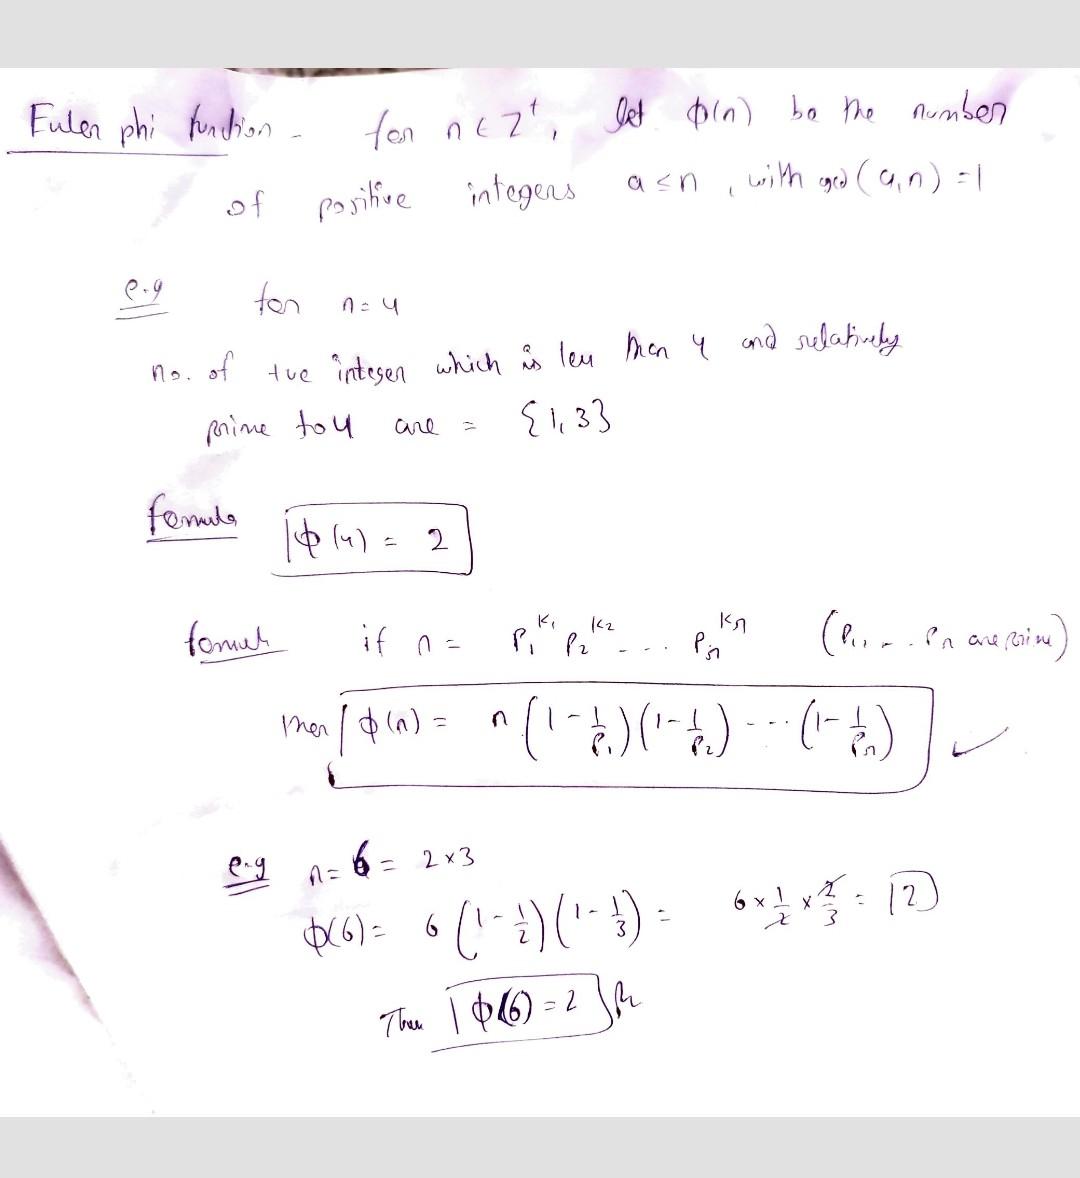 Euler phi function - for n ∈ Z⁺, let ϕ(n) be the number
of positive integers a ≤ n, with gcd(a,n) = 1
e.g for n = 4
no. of +ve integer which is less then 4 and relatively
prime to 4 are = {1, 3}
ϕ(4) = 2
if n = P₁^k₁ P₂^k₂ ... Pₙ^kₙ (P₁, ... Pₙ are prime)
then ϕ(n) = n(1 - 1/P₁)(1 - 1/P₂) ---- (1 - 1/Pₙ)
e.g n = 6 = 2×3
ϕ(6) = 6(1 - 1/2)(1 - 1/3) = 6 × 1/2 × 2/3 = 2
ϕ(6) = 2